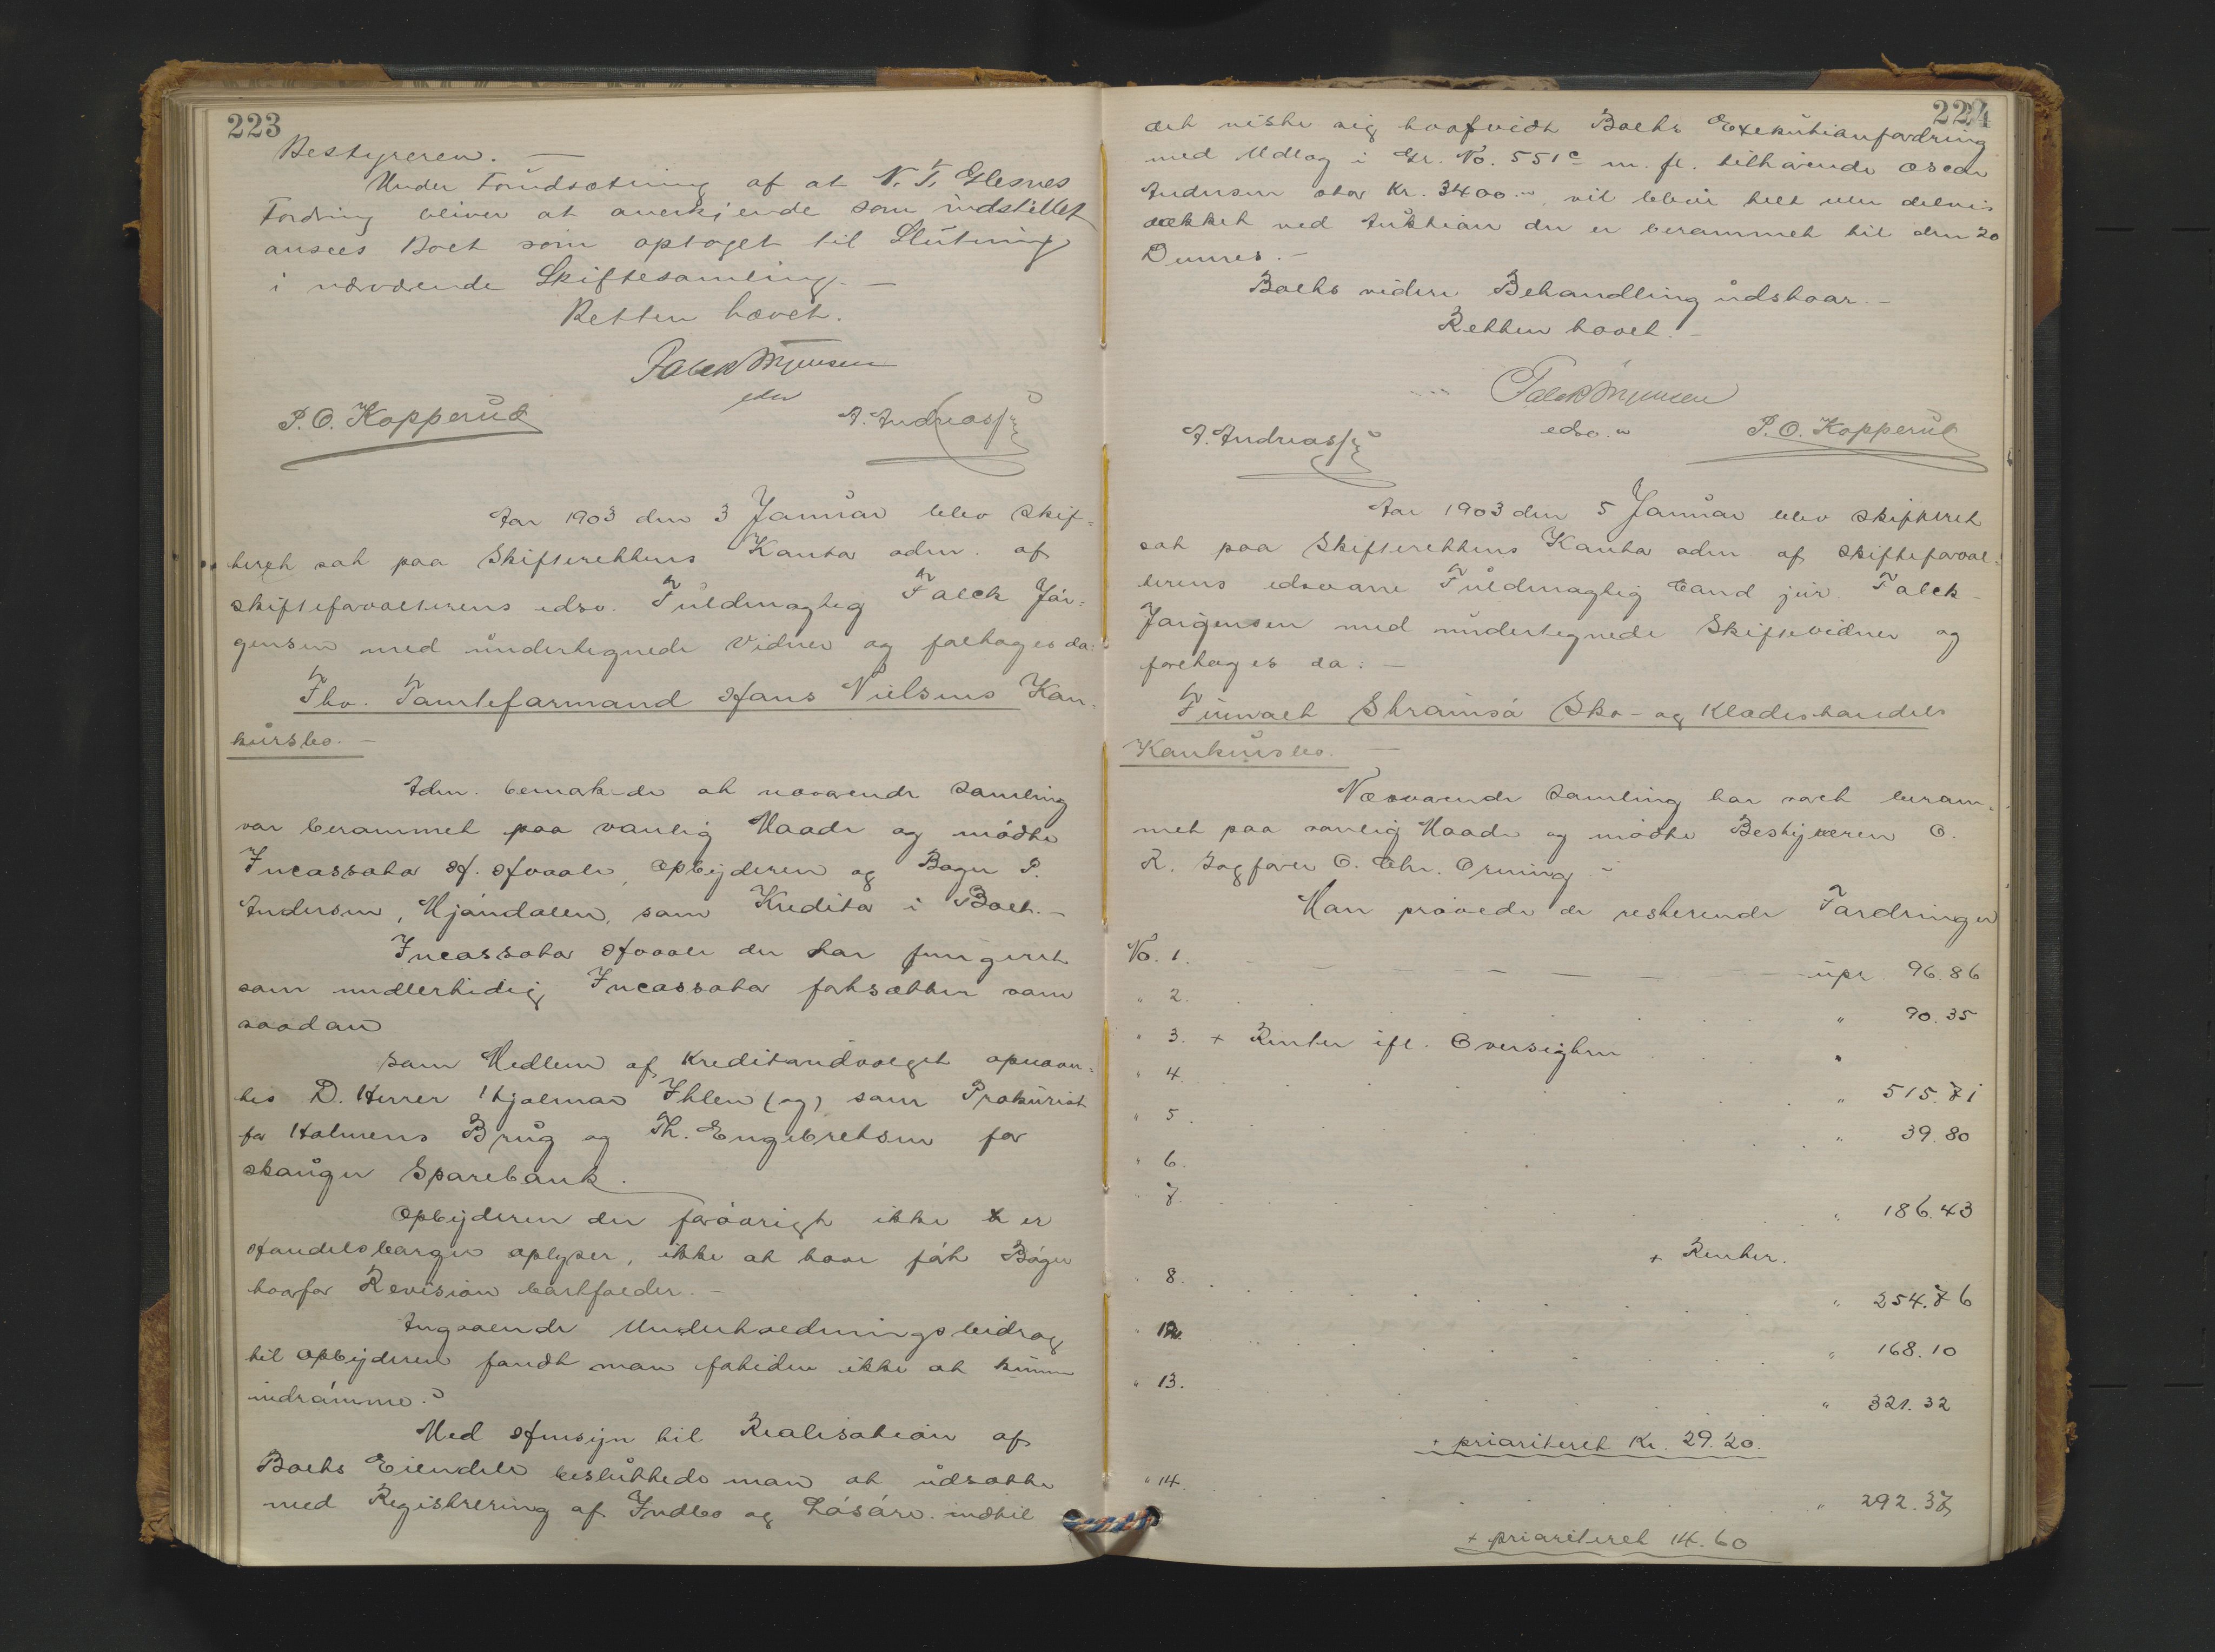 223
Bestyreren. —
Under Forudsætning af at N. T. Glesnes
Fordring bliver at anerkjende som indstillet
ansees Boet som optaget til Slutning
i nærværende Skiftesamling. —
Retten hævet.
Falck Jørgensen
edsv
P. O. Kopperud
A. Andreassen
Aar 1903 den 3 Januar blev Skif=
teret sat paa Skifterettens Kontor adm. af
Skifteforvalterens edsv. Fuldmægtig Falck Jør=
gensen med undertegnede Vidner og foretoges da:
Fhv. Tømteformand Hans Nielsens Kon=
kursbo. —
Adm. bemærkede at nærværende Samling
var berammet paa vanlig Maade og mødte
Incassator H. Hvaale, Opbyderen og Bager P.
Andersen, Mjøndalen, som Kreditor i Boet. —
Incassator Hvaale der har fungeret
som midlertidig Incassator fortsætter som
saadan
Som Medlem af Kreditorudvalget opnævn=
tes D. Herrer Hjalmar Ihlen (og) som Prokurist
for Holmens Brug og Th. Engebretsen for
Skauger Sparebank.
Opbyderen der forøvrigt ikke er
Handelsborger oplyser, ikke at have ført Bøger
hvorfor Revision bortfalder. —
Angaaende Underholdningsbidrag
til Opbyderen fandt man fortiden ikke at kunne
indrømme.
Med Hensyn til Realisation af
Boets Eiendele besluttede man at udsætte
med Registrering af Indbo og Løsøre indtil
224
det viste sig hvorvidt Boets Exekutionsfordring
med Udlæg i Gr. No. 551c m. fl. tilhørende Oscar
Andersen stor Kr. 3400.", vil blive helt eller delvis
dækket ved Auktion der er berammet til den 20
Dennes. —
Boets videre Behandling udstaar. —
Retten hævet. —
Falck Jørgensen
edsv.
A. Andreassen
P. O. Kopperud
Aar 1903 den 5 Januar blev Skifteret
sat paa Skifterettens Kontor adm. af Skifteforval=
terens edsvorne Fuldmægtig Cand jur. Falck-
Jørgensen med undertegnede Skiftevidner og
foretoges da: —
Firmaet Strømsø Sko- og Klædeshandels
Konkursbo. —
Nærværende Samling har vært beram=
met paa vanlig Maade og mødte Bestyreren O.
R. Sagfører O. Chr. Orning.
Man prøvede de resterende Fordringer
No. 1. — — — — — — upr. 96.86
" 2. " 90.35
" 3. + Renter ifl. Oversigten "
" 4. " 515.71
" 5. " 39.80
" 6.
" 7. " 186.43
+ Renter.
" 8. " 254.76
" 12. " 168.10
" 13. " 321.32
+ prioriteret Kr. 29.20.
" 14. " 292.37
+ prioriteret 14.60